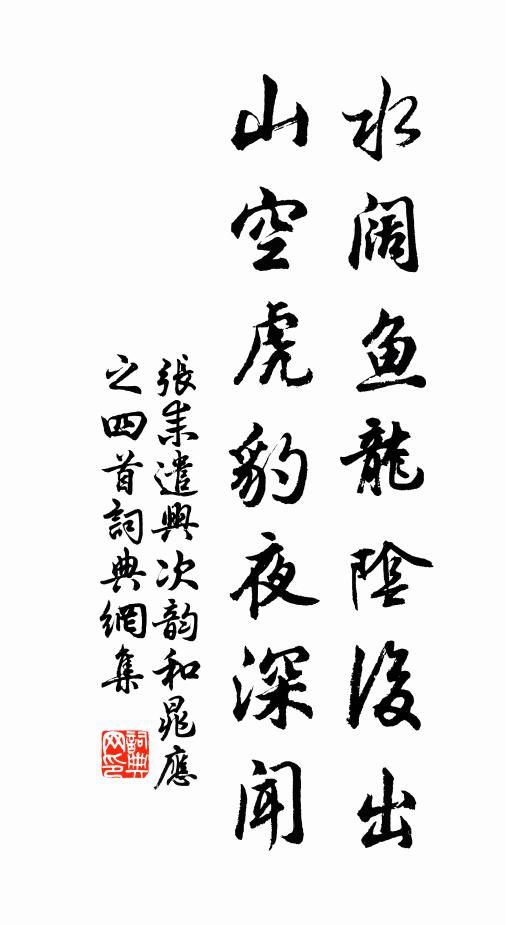 水阔鱼龍陰後出
山空虎豹夜深闻
張耒遣興次韵和晁應
之四首詞典網集
詞典網印